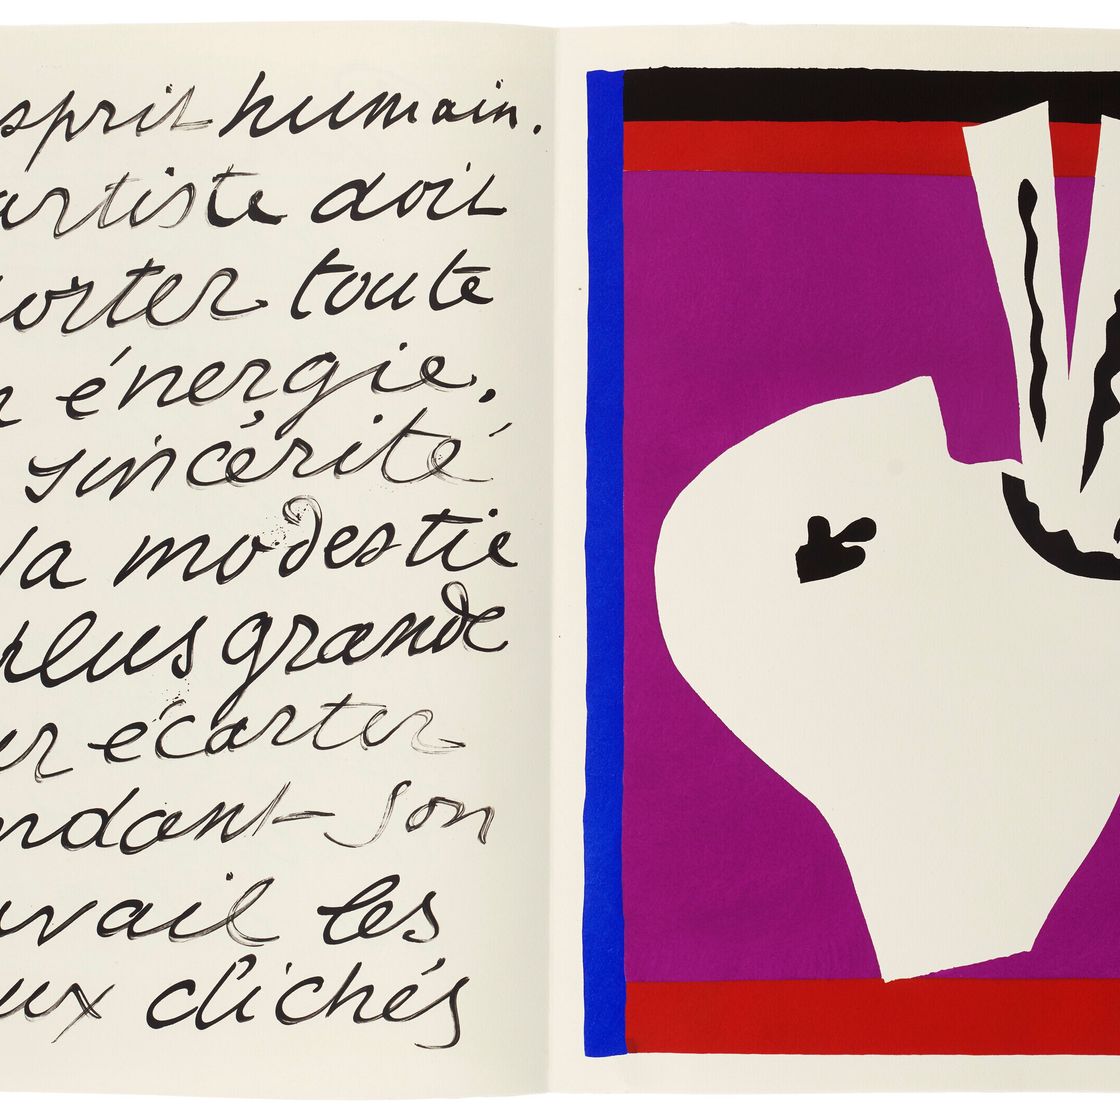 sprit humain.
artiste doit
orter toute
n énergie,
sincérité
la modestie
plus grande
ur écarter
ndant son
avail les
ux clichés